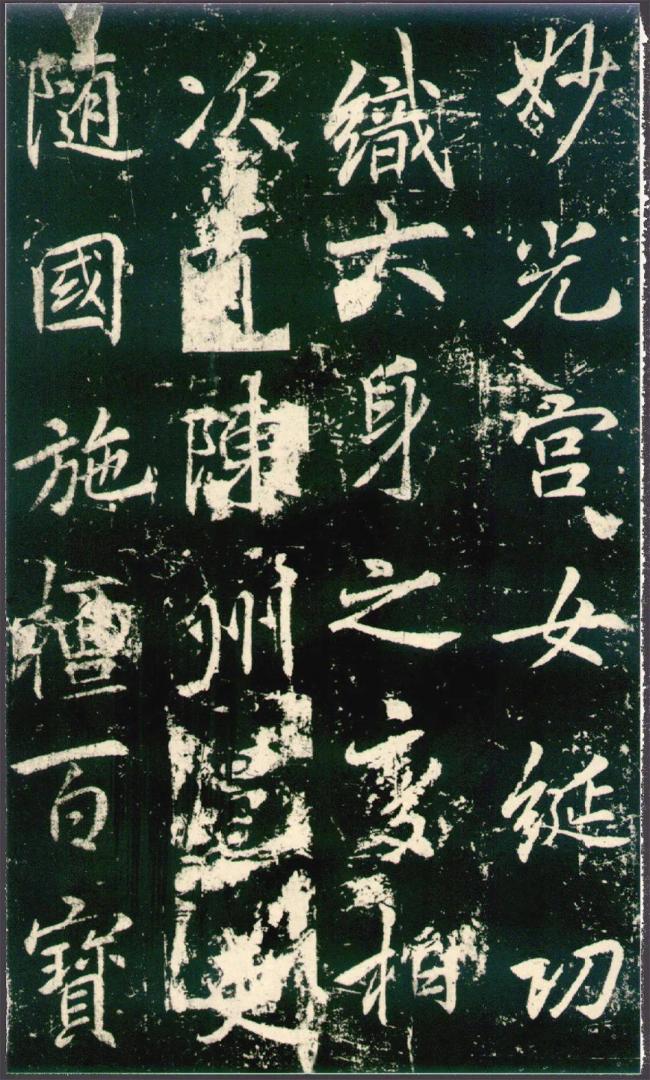 妙光宫女綖功
織大身之變相
次陳州
随國施檀百寶